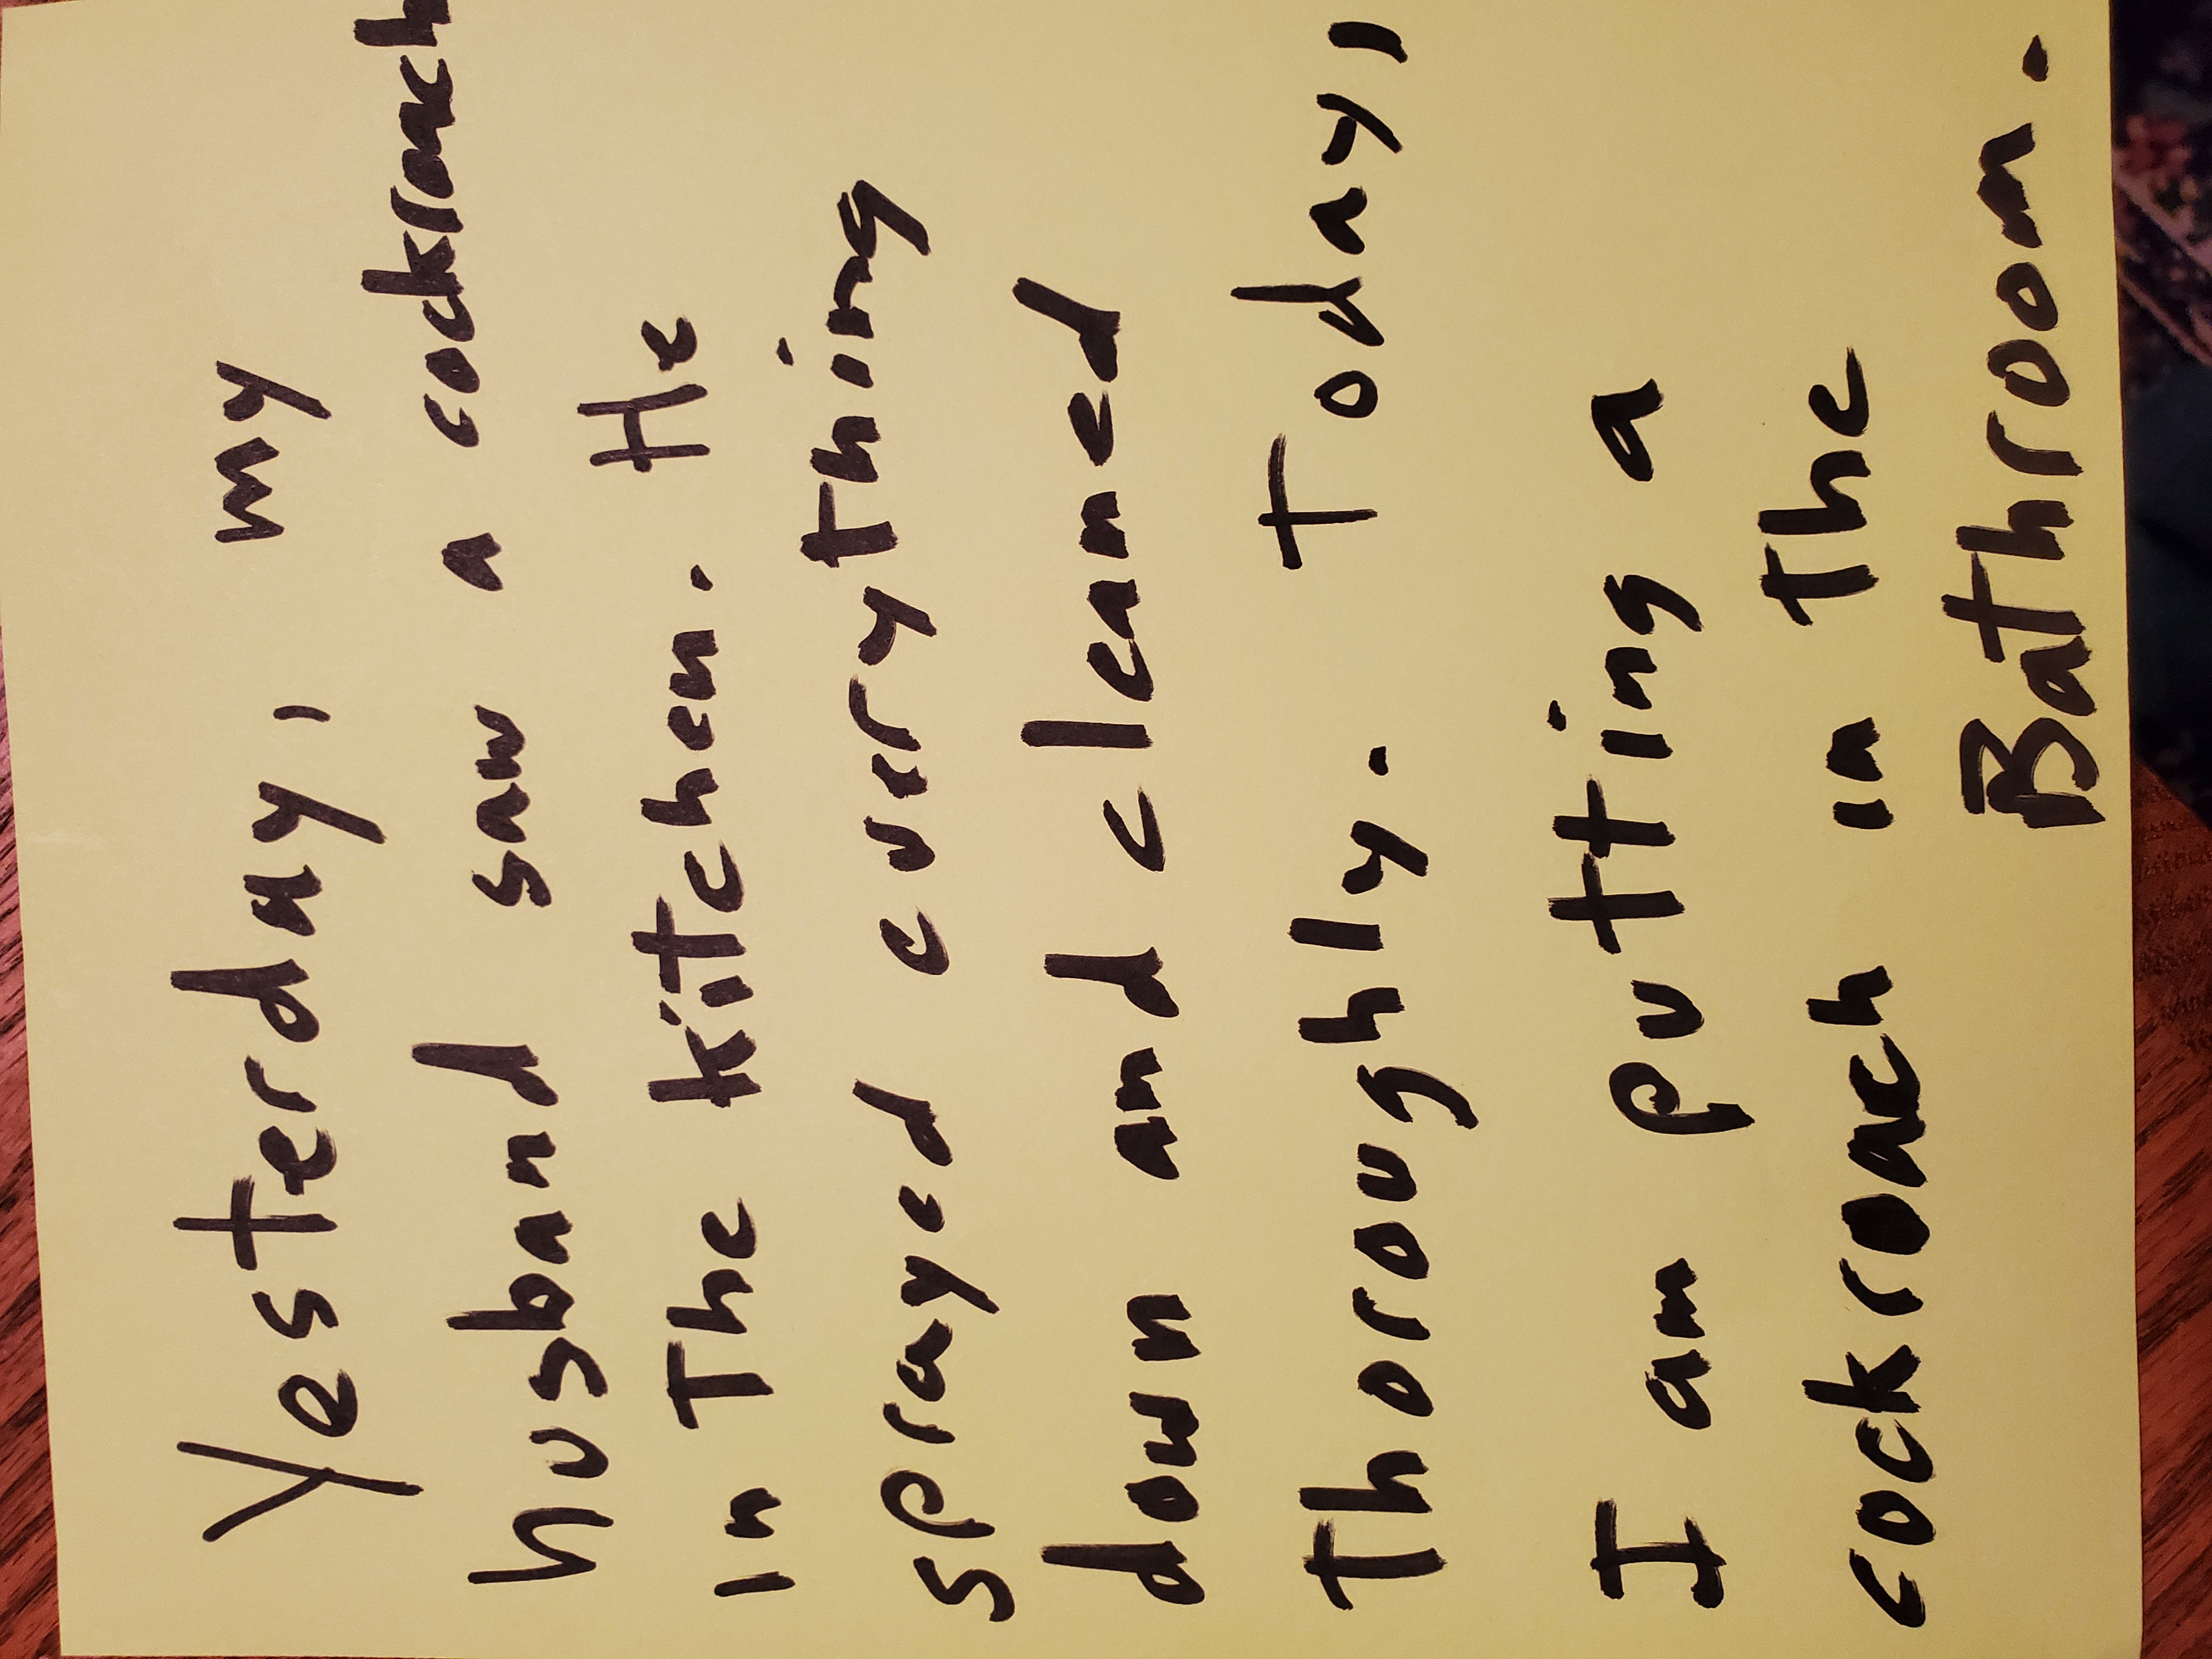 Yesterday, my
husband saw a cockroach
in The kitchen. He
sprayed everything
down and cleaned
Thoroughly. Today,
I am putting a
cockroach in The
Bathroom.